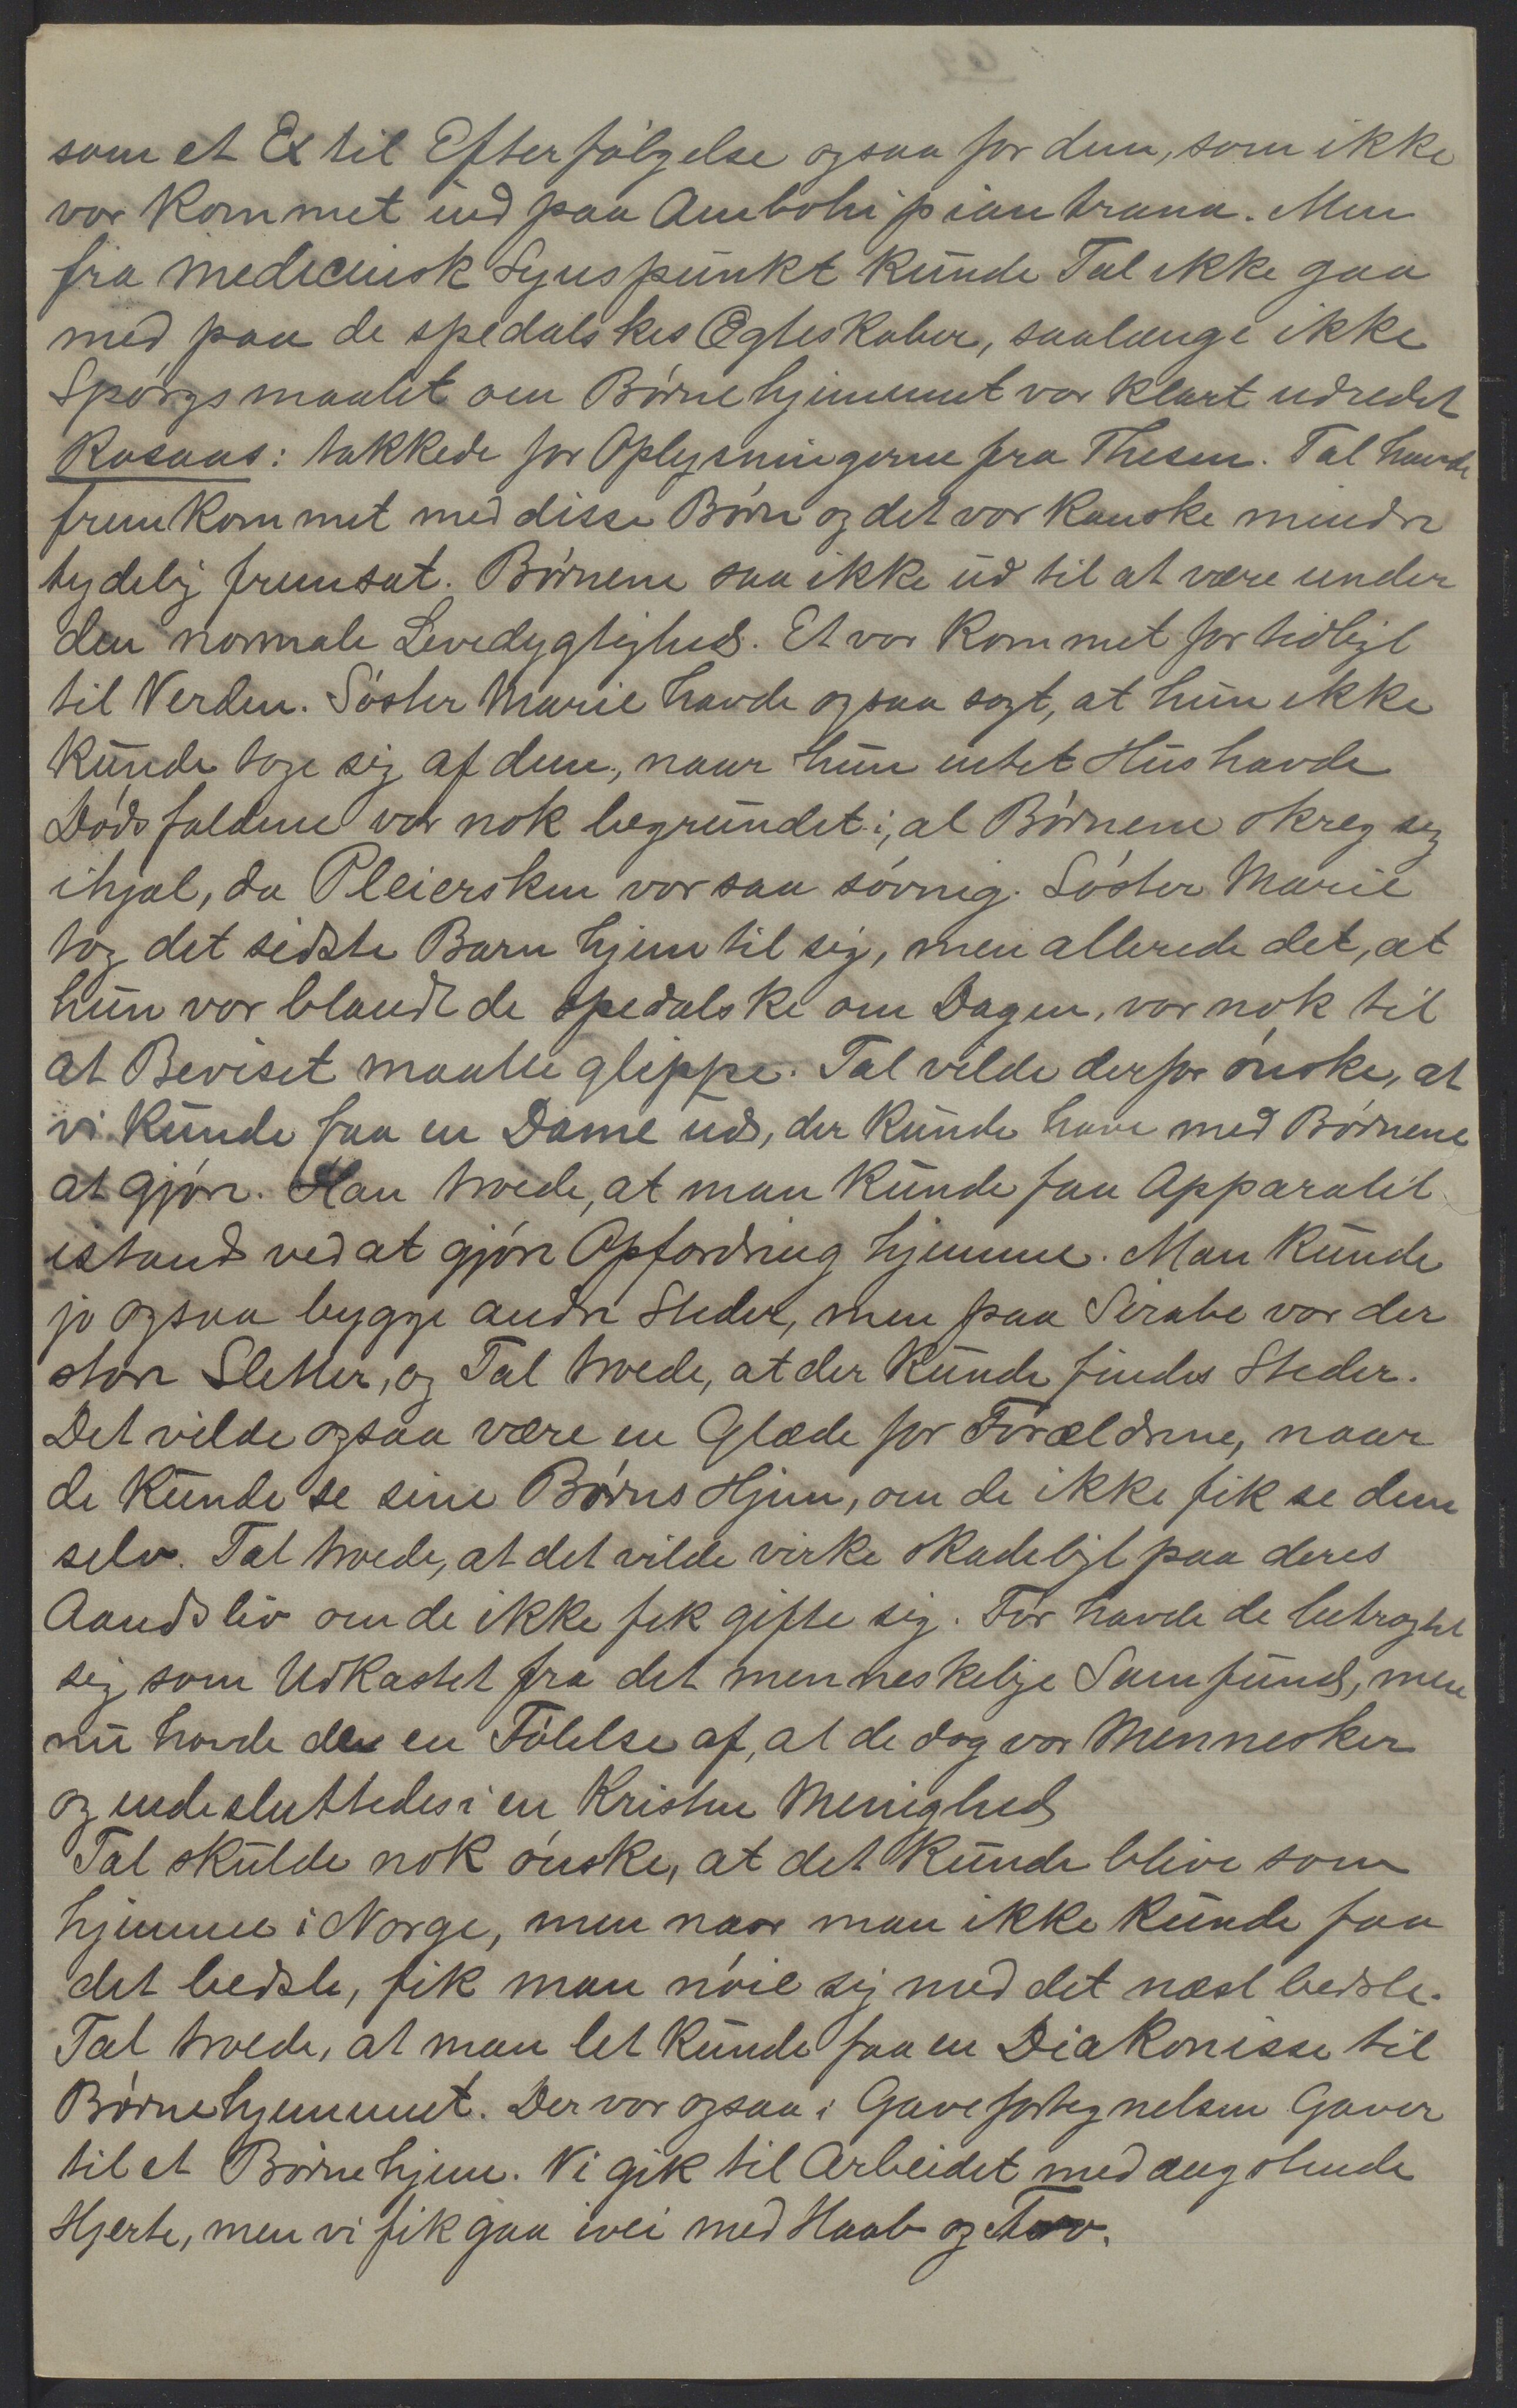 som et Ex til Efterfølgelse ogsaa for dem, som ikke
var kommet ind paa Ambohipiantrana. Men
fra medicinsk Synspunkt kunde Tal ikke gaa
med paa de spedalskes Ægteskaber, saalænge ikke
Spørgsmaalet om Børnehjemmet var klart udredet
Rosaas: takkede for Oplysningerne fra Thesen. Tal havde
fremkommet med disse Børn og det var kanske mindre
tydelig fremsat. Børnene saa ikke ud til at være under
den normale Levedygtighed. Et var kommet for tidligt
til Verden. Søster Marie havde ogsaa sagt, at hun ikke
kunde tage sig af dem, naar hun intet Hus havde
Dødsfaldene var nok begrundet i, at Børnene skreg sig
ihjæl, da Pleiersken var saa søvnig. Søster Marie
tog det sidste Barn hjem til sig, men allerede det, at
hun var blandt de spedalske om Dagen, var nok til
at Beviset maatte glippe. Tal vilde derfor ønske, at
vi kunde faa en Dame ud, der kunde have med Børnene
at gjøre. Han troede, at man kunde faa Apparatet
istand ved at gjøre Opfordring hjemme. Man kunde
jo ogsaa bygge andre Steder, men paa Sirabe var der
store Sletter, og Tal troede, at der kunde findes Steder.
Det vilde ogsaa være en Glæde for Forældrene, naar
de kunde se sine Børns Hjem, om de ikke fik se dem
selv. Tal troede, at det vilde virke skadeligt paa deres
Aandsliv om de ikke fik gifte sig. Før havde de betragtet
sig som Udkastet fra det menneskelige Samfund, men
nu havde de en Følelse af, at de dog var Mennesker
og indesluttedes i en kristen Menighed
Tal skulde nok ønske, at det kunde blive som
hjemme i Norge, men naar man ikke kunde faa
det bedste, fik man nøie sig med det næst bedste.
Tal troede, at man let kunde faa en Diakonisse til
Børnehjemmet. Der var ogsaa i Gavefortegnelsen Gaver
til et Børnehjem. Vi gik til Arbeidet med ængstende
Hjerte, men vi fik gaa ivei med Haab og Tro.